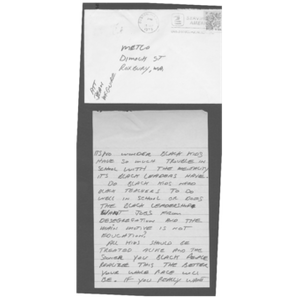 METCO
DIMOCK ST
ROXBURY, MA
ATT
IT'S NO WONDER BLACK KIDS
HAVE SO MUCH TROUBLE IN
SCHOOL WITH THE MENTALITY
IT'S BLACK LEADERS HAVE
DO BLACK KIDS NEED
BLACK TEACHERS TO DO
WELL IN SCHOOL OR DOES
THE BLACK LEADERSHIP
WANT JOBS FROM
DESEGREGATION AND THE
MAIN MOTIVE IS NOT
EDUCATION?
ALL KIDS SHOULD BE
TREATED ALIKE AND THE
SOONER YOU BLACK PEOPLE
REALIZE THIS THE BETTER
YOUR WHOLE RACE WILL
BE. IF YOU REALLY WANT